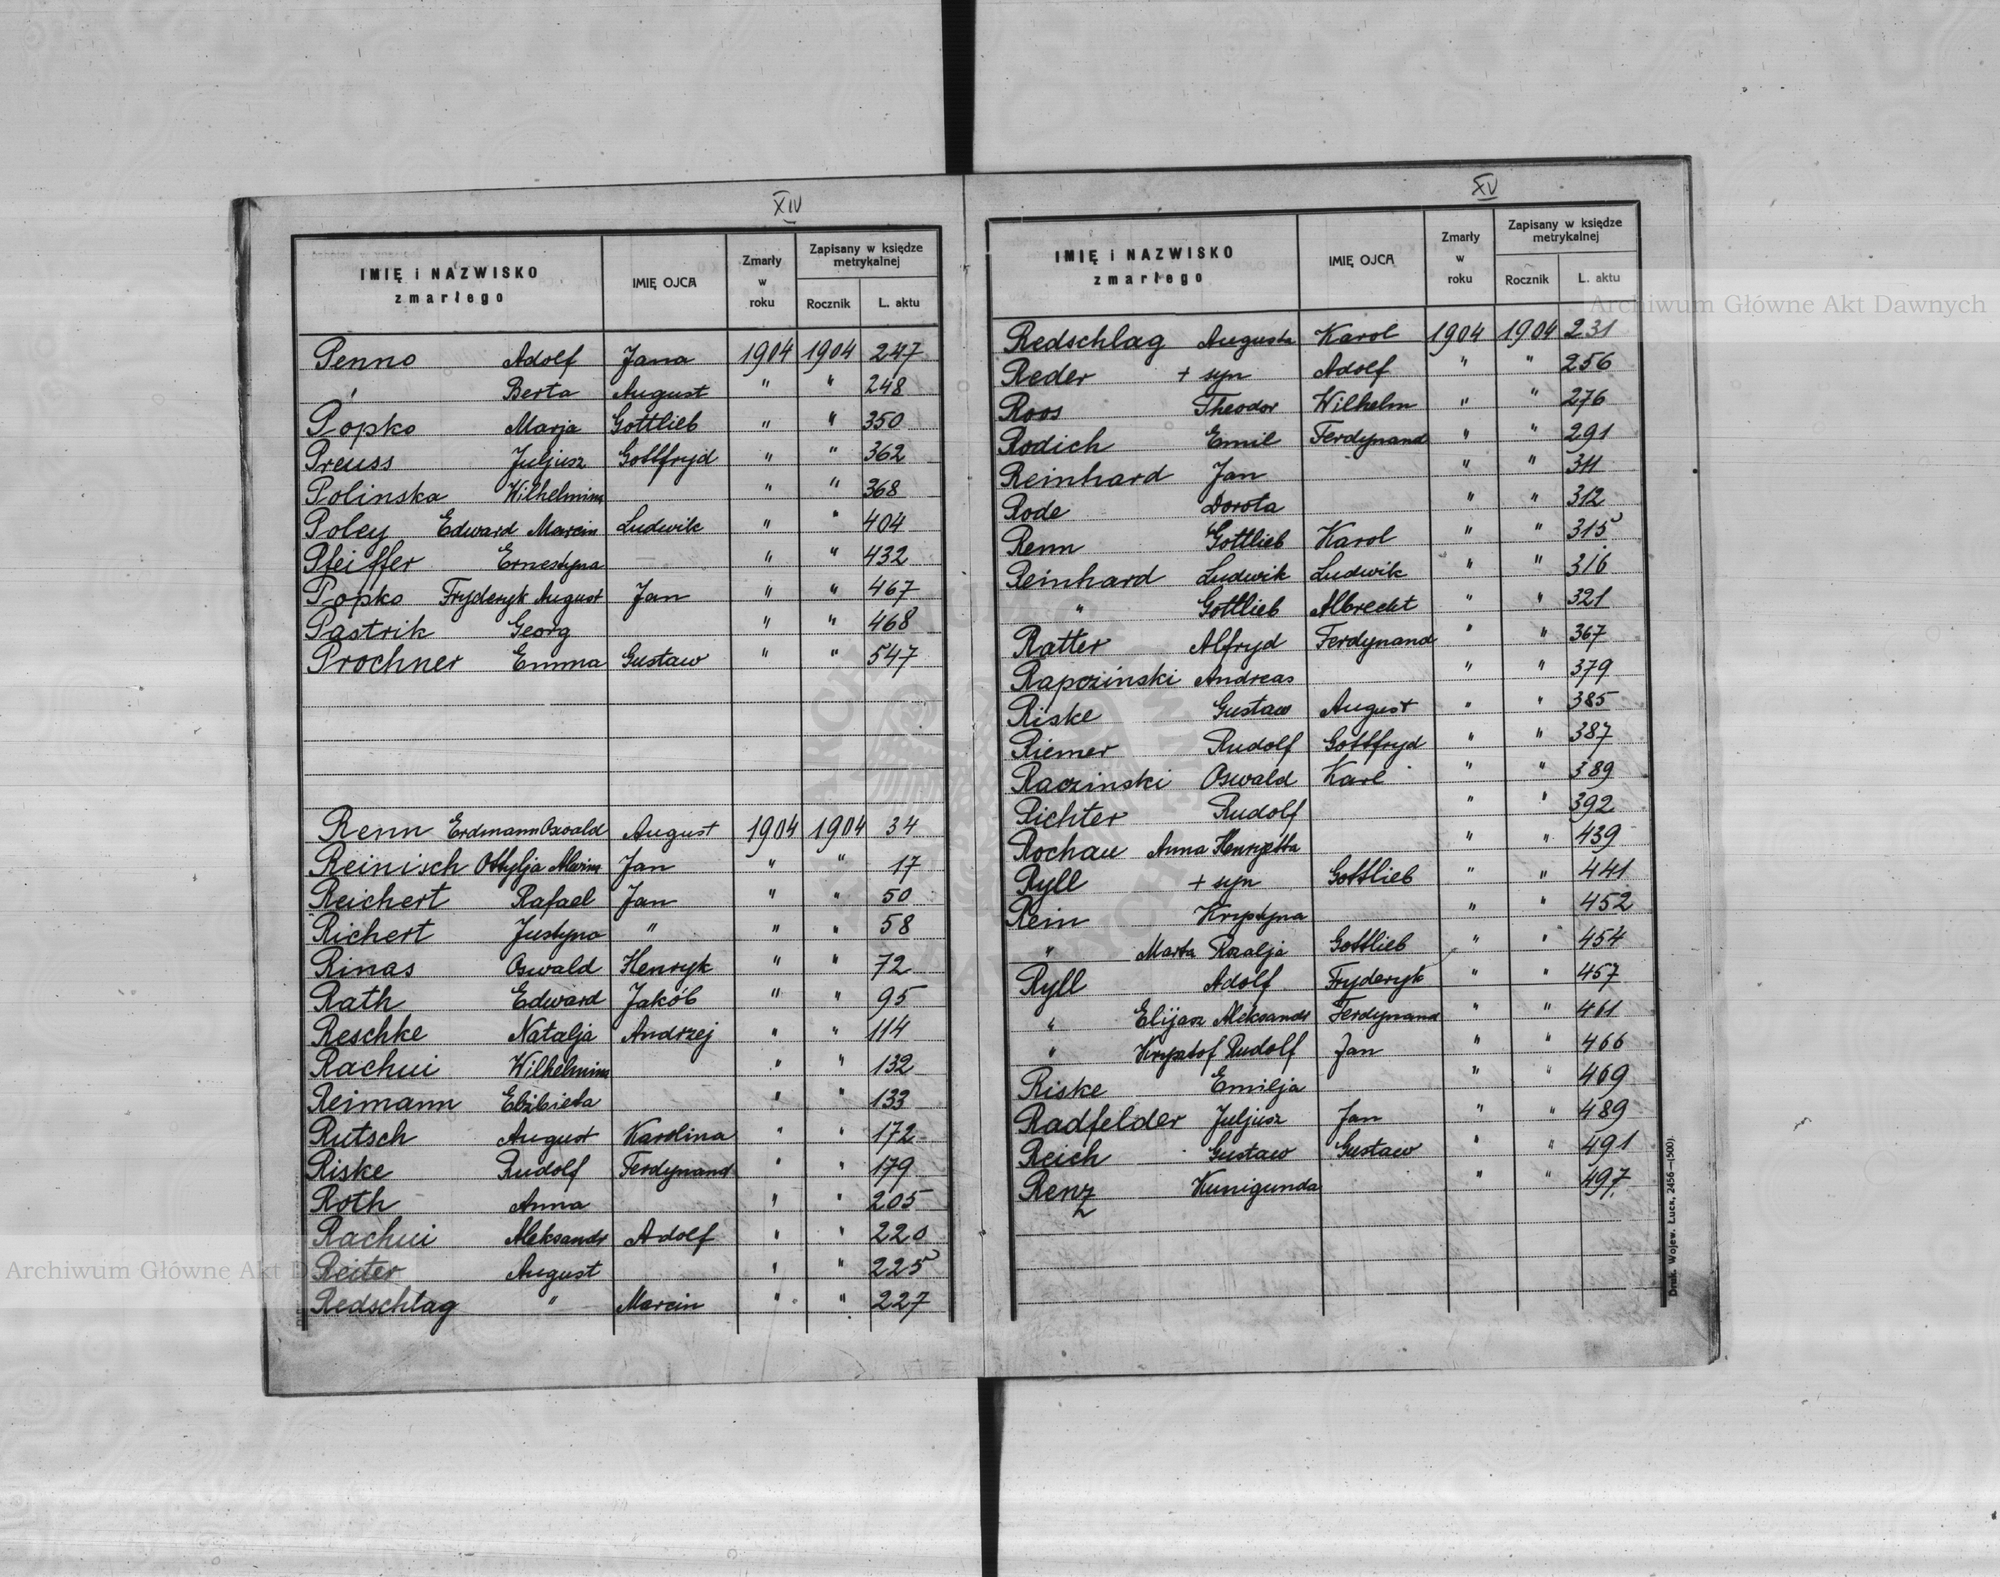 XIV
IMIĘ i NAZWISKO zmarłego IMIĘ OJCA Zmarły w roku Zapisany w księdze metrykalnej Rocznik L. aktu
Penno Adolf Jana 1904 1904 247
" Berta August " " 248
Popko Marja Gottlieb " " 350
Preuss Juljusz Gottfryd " " 362
Polinska Wilhelmina " " 368
Poley Edward Marcin Ludwik " " 404
Pfeiffer Ernestyna " " 432
Popko Fryderyk August Jan " " 467
Pastrik Georg " " 468
Prochner Emma Gustaw " " 547
Renn Erdmann Oswald August 1904 1904 34
Reinisch Ottylja Alwina Jan " " 17
Reichert Rafael Jan " " 50
Richert Justyna " " " 58
Rinas Oswald Henryk " " 72
Rath Edward Jakób " " 95
Reschke Natalja Andrzej " " 114
Rachui Wilhelmina " " 132
Reimann Elżbieta " " 133
Rutsch August Karolina " " 172
Riske Rudolf Ferdynand " " 179
Roth Anna " " 205
Rachui Aleksandr Adolf " " 220
Reiter August " " 225
Redschlag " Marcin " " 227
XV
IMIĘ i NAZWISKO zmarłego IMIĘ OJCA Zmarły w roku Zapisany w księdze metrykalnej Rocznik L. aktu
Redschlag Augusta Karol 1904 1904 231
Reder + syn Adolf " " 256
Roos Theodor Wilhelm " " 276
Rodich Emil Ferdynand " " 291
Reinhard Jan " " 311
Rode Dorota " " 312
Renn Gottlieb Karol " " 315
Reinhard Ludwik Ludwik " " 316
" Gottlieb Albrecht " " 321
Ratter Alfryd Ferdynand " " 367
Rapczinski Andreas " " 379
Riske Gustaw August " " 385
Riemer Rudolf Gottfryd " " 387
Raczinski Oswald Karl " " 389
Richter Rudolf " " 392
Rochau Anna Henryetta " " 439
Ryll + syn Gottlieb " " 441
Rein Krystyna " " 452
" Marta Rozalja Gottlieb " " 454
Ryll Adolf Fryderyk " " 457
" Elijasz Aleksandr Ferdynand " " 461
" Krysztof Rudolf Jan " " 466
Riske Emilja " " 469
Radfelder Juljusz Jan " " 489
Reich Gustaw Gustaw " " 491
Renz Kunigunda " " 497
Druk. Wojew. Łuck, 2456—(500).
Archiwum Główne Akt Dawnych
Archiwum Główne Akt D